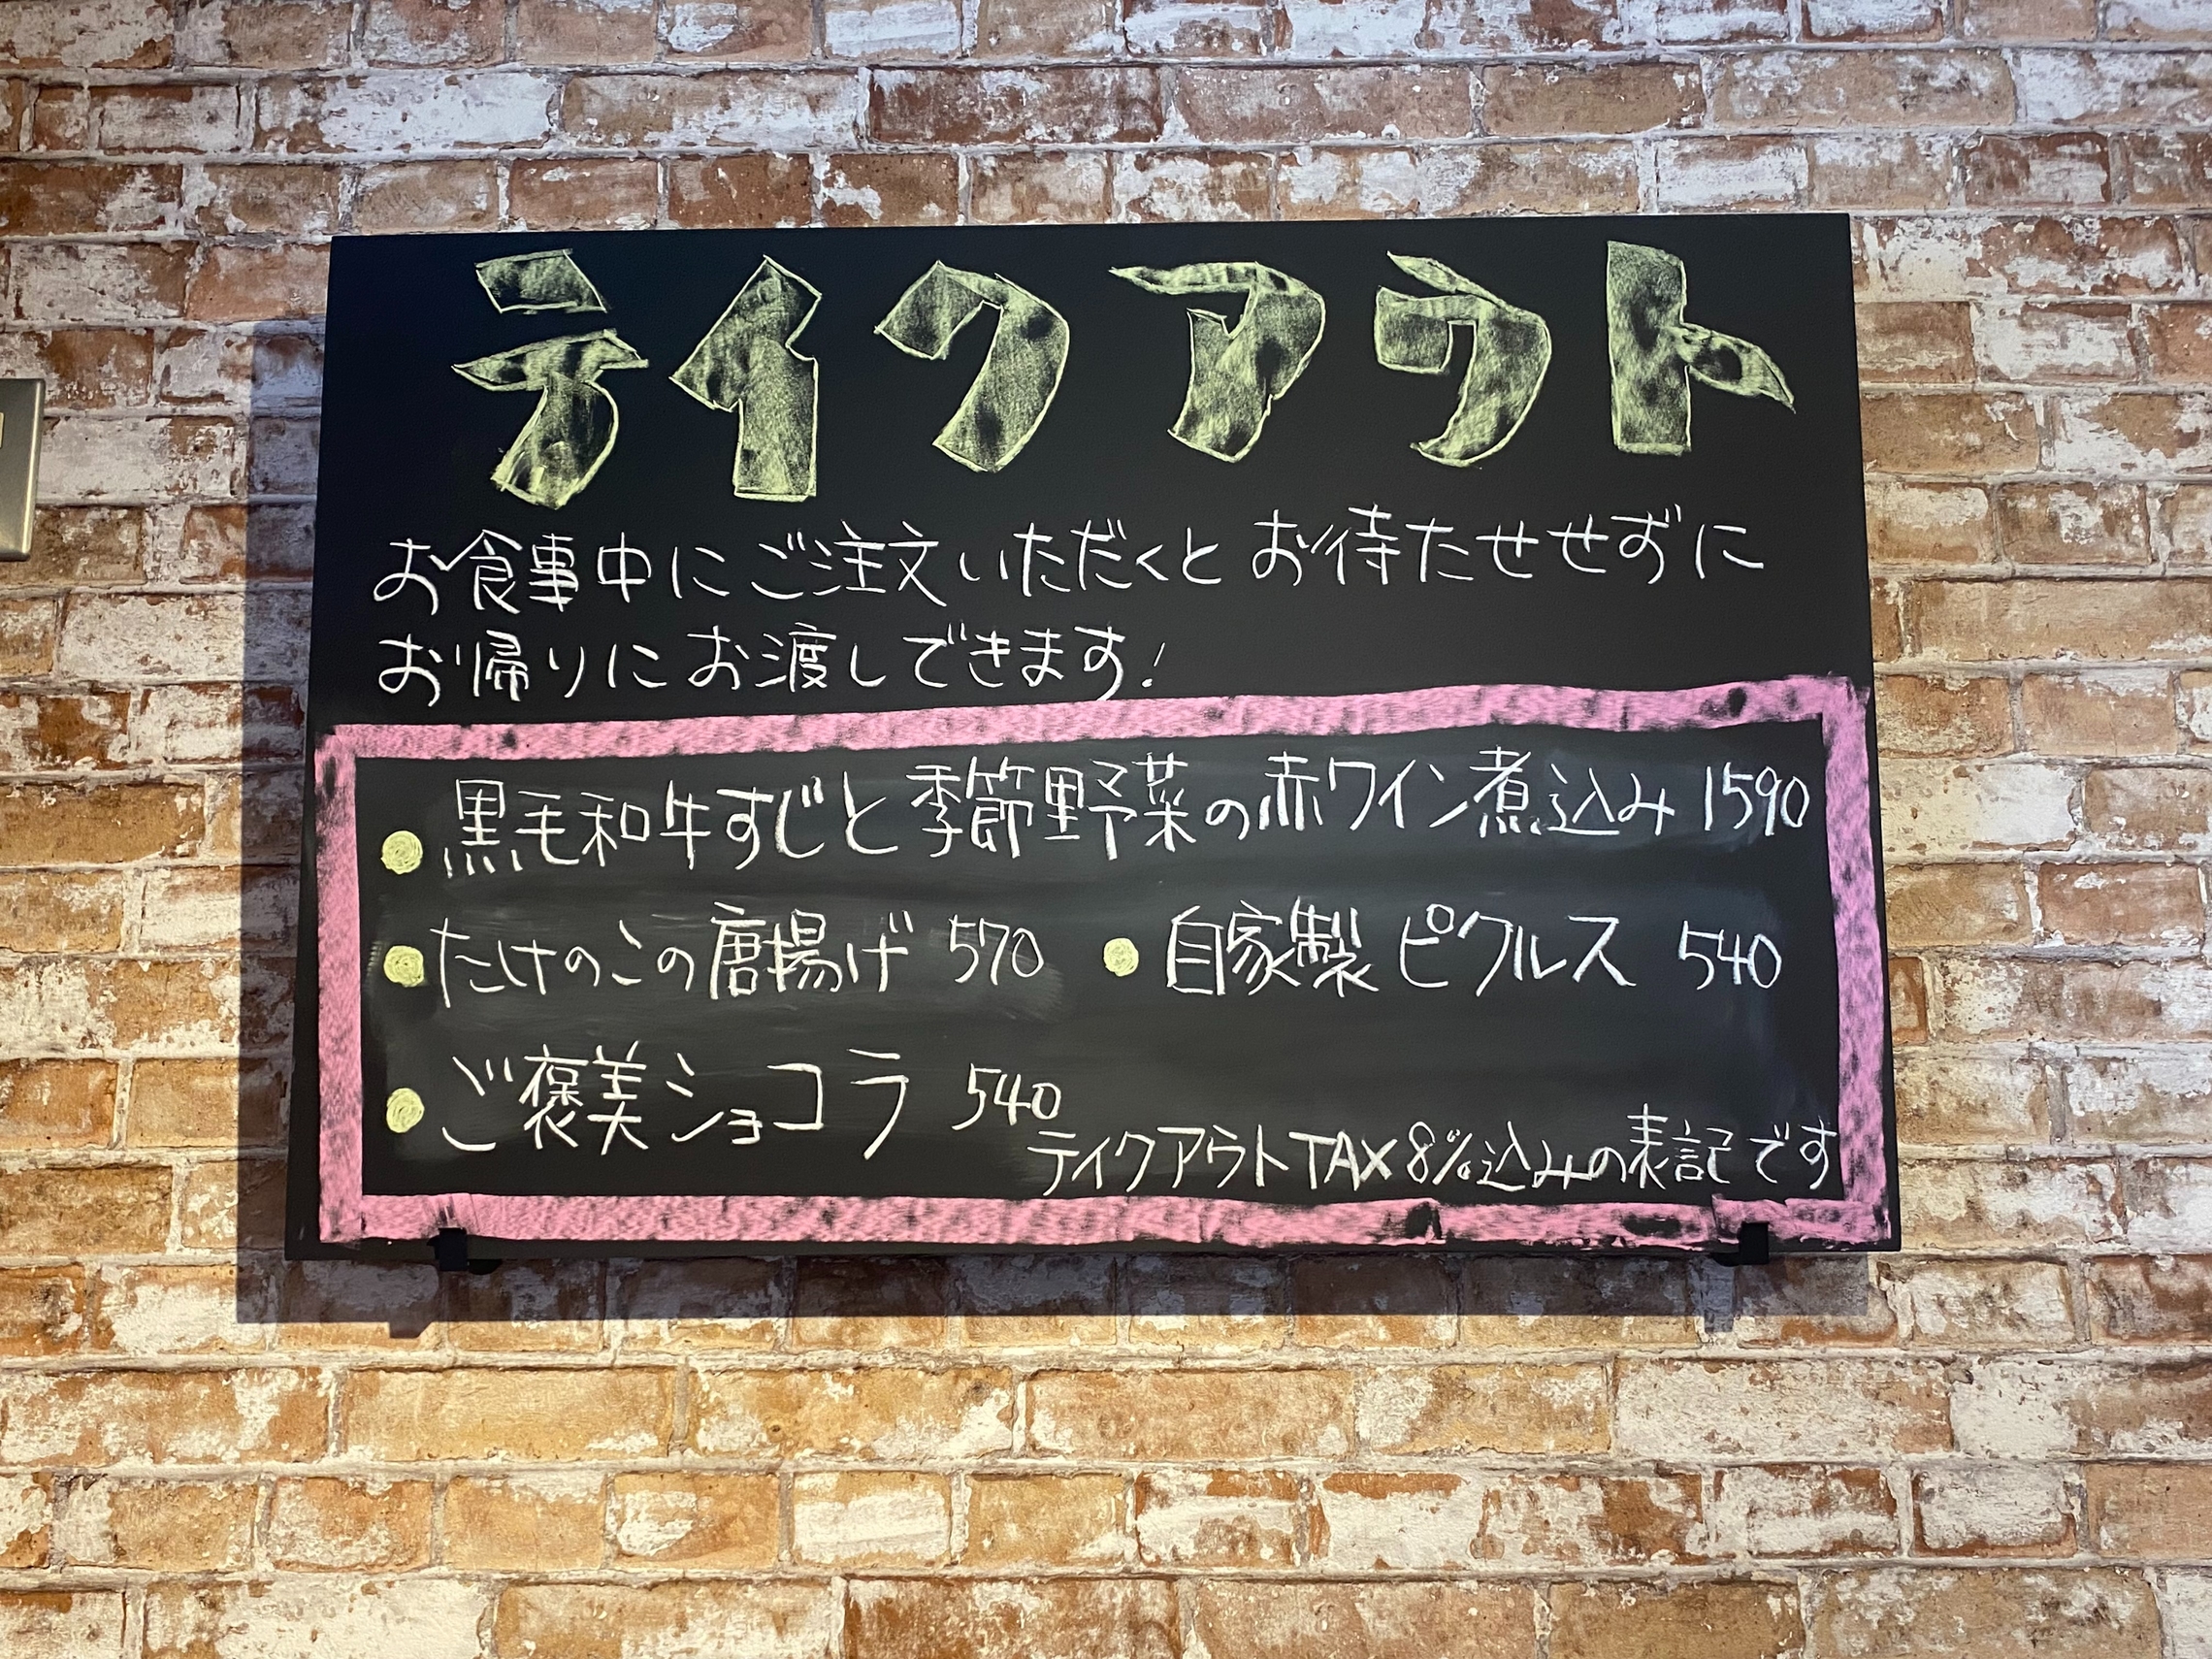 テイクアウト
お食事中にご注文いただくとお待たせせずに
お帰りにお渡しできます!
黒毛和牛すじと季節野菜の赤ワイン煮込み 1590
たけのこの唐揚げ 570 自家製ピクルス 540
ご褒美ショコラ 540
テイクアウトTAX8%込みの表記です